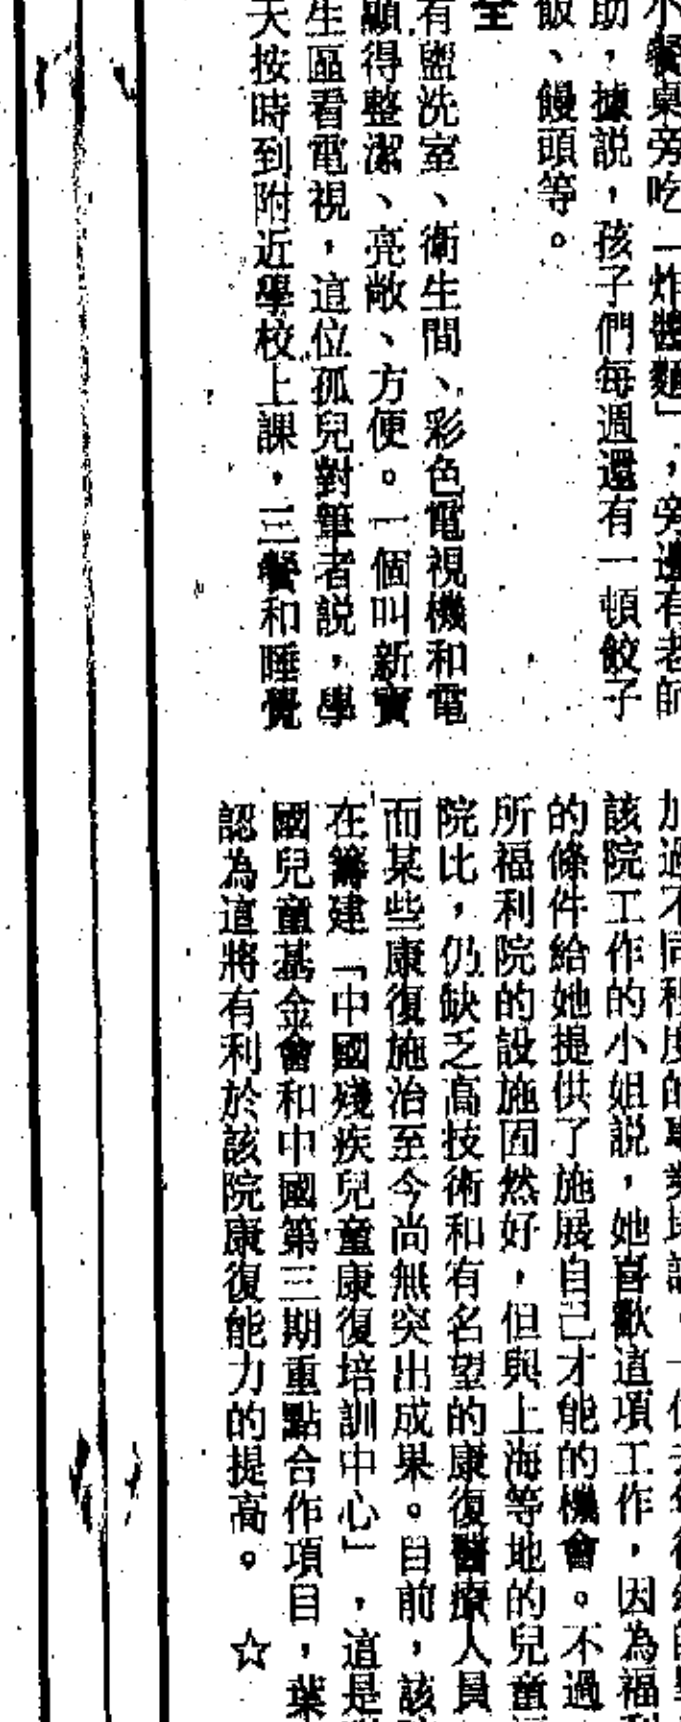 小餐桌旁吃「炸醬麵」，旁邊有老師
助，據説，孩子們每週還有一頓餃子
飯、饅頭等。
全
有盥洗室、衛生間、彩色電視機和電
顯得整潔、亮敞、方便。一個叫新寶
生區看電視，這位孤兒對筆者説，學
天按時到附近學校上課，三餐和睡覺
加過不同程度的專業培訓，一位去年
該院工作的小姐説，她喜歡這項工作，因為福利
的條件給她提供了施展自己才能的機會。不過
所福利院的設施固然好，但與上海等地的兒童
院比，仍缺乏高技術和有名望的康復醫療人員
而某些康復施治至今尚無突出成果。目前，該
在籌建「中國殘疾兒童康復培訓中心」，這是
國兒童基金會和中國第三期重點合作項目，葉
認為這將有利於該院康復能力的提高。☆